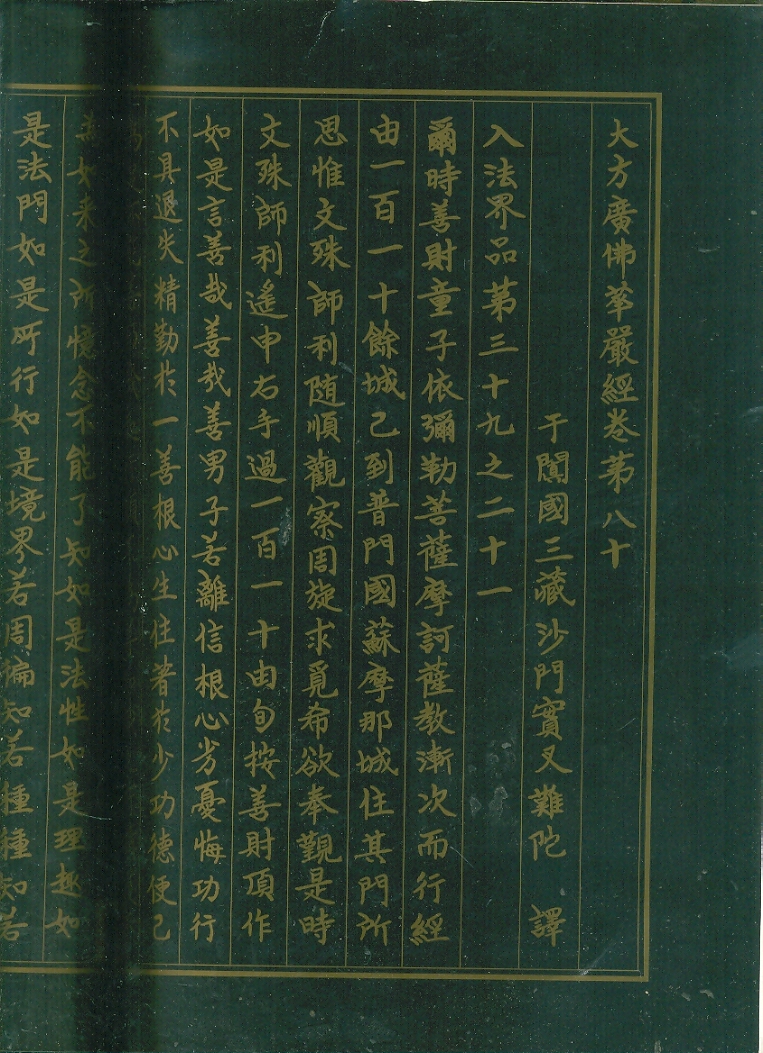 大方廣佛華嚴經卷苐八十
于闐國三藏沙門實叉難陀 譯
入法界品苐三十九之二十一
爾時善財童子依彌勒菩薩摩訶薩教漸次而行經
由一百一十餘城已到普門國蘇摩那城住其門所
思惟文殊師利随順觀察周旋求覓希欲奉覲是時
文殊師利遙申右手過一百一十由旬按善財頂作
如是言善哉善哉善男子若離信根心劣憂悔功行
不具退失精勤於一善根心生住著於少功德便已
為如来之所憶念不能了知如是法性如是理趣如
是法門如是所行如是境界若周徧知若種種知若